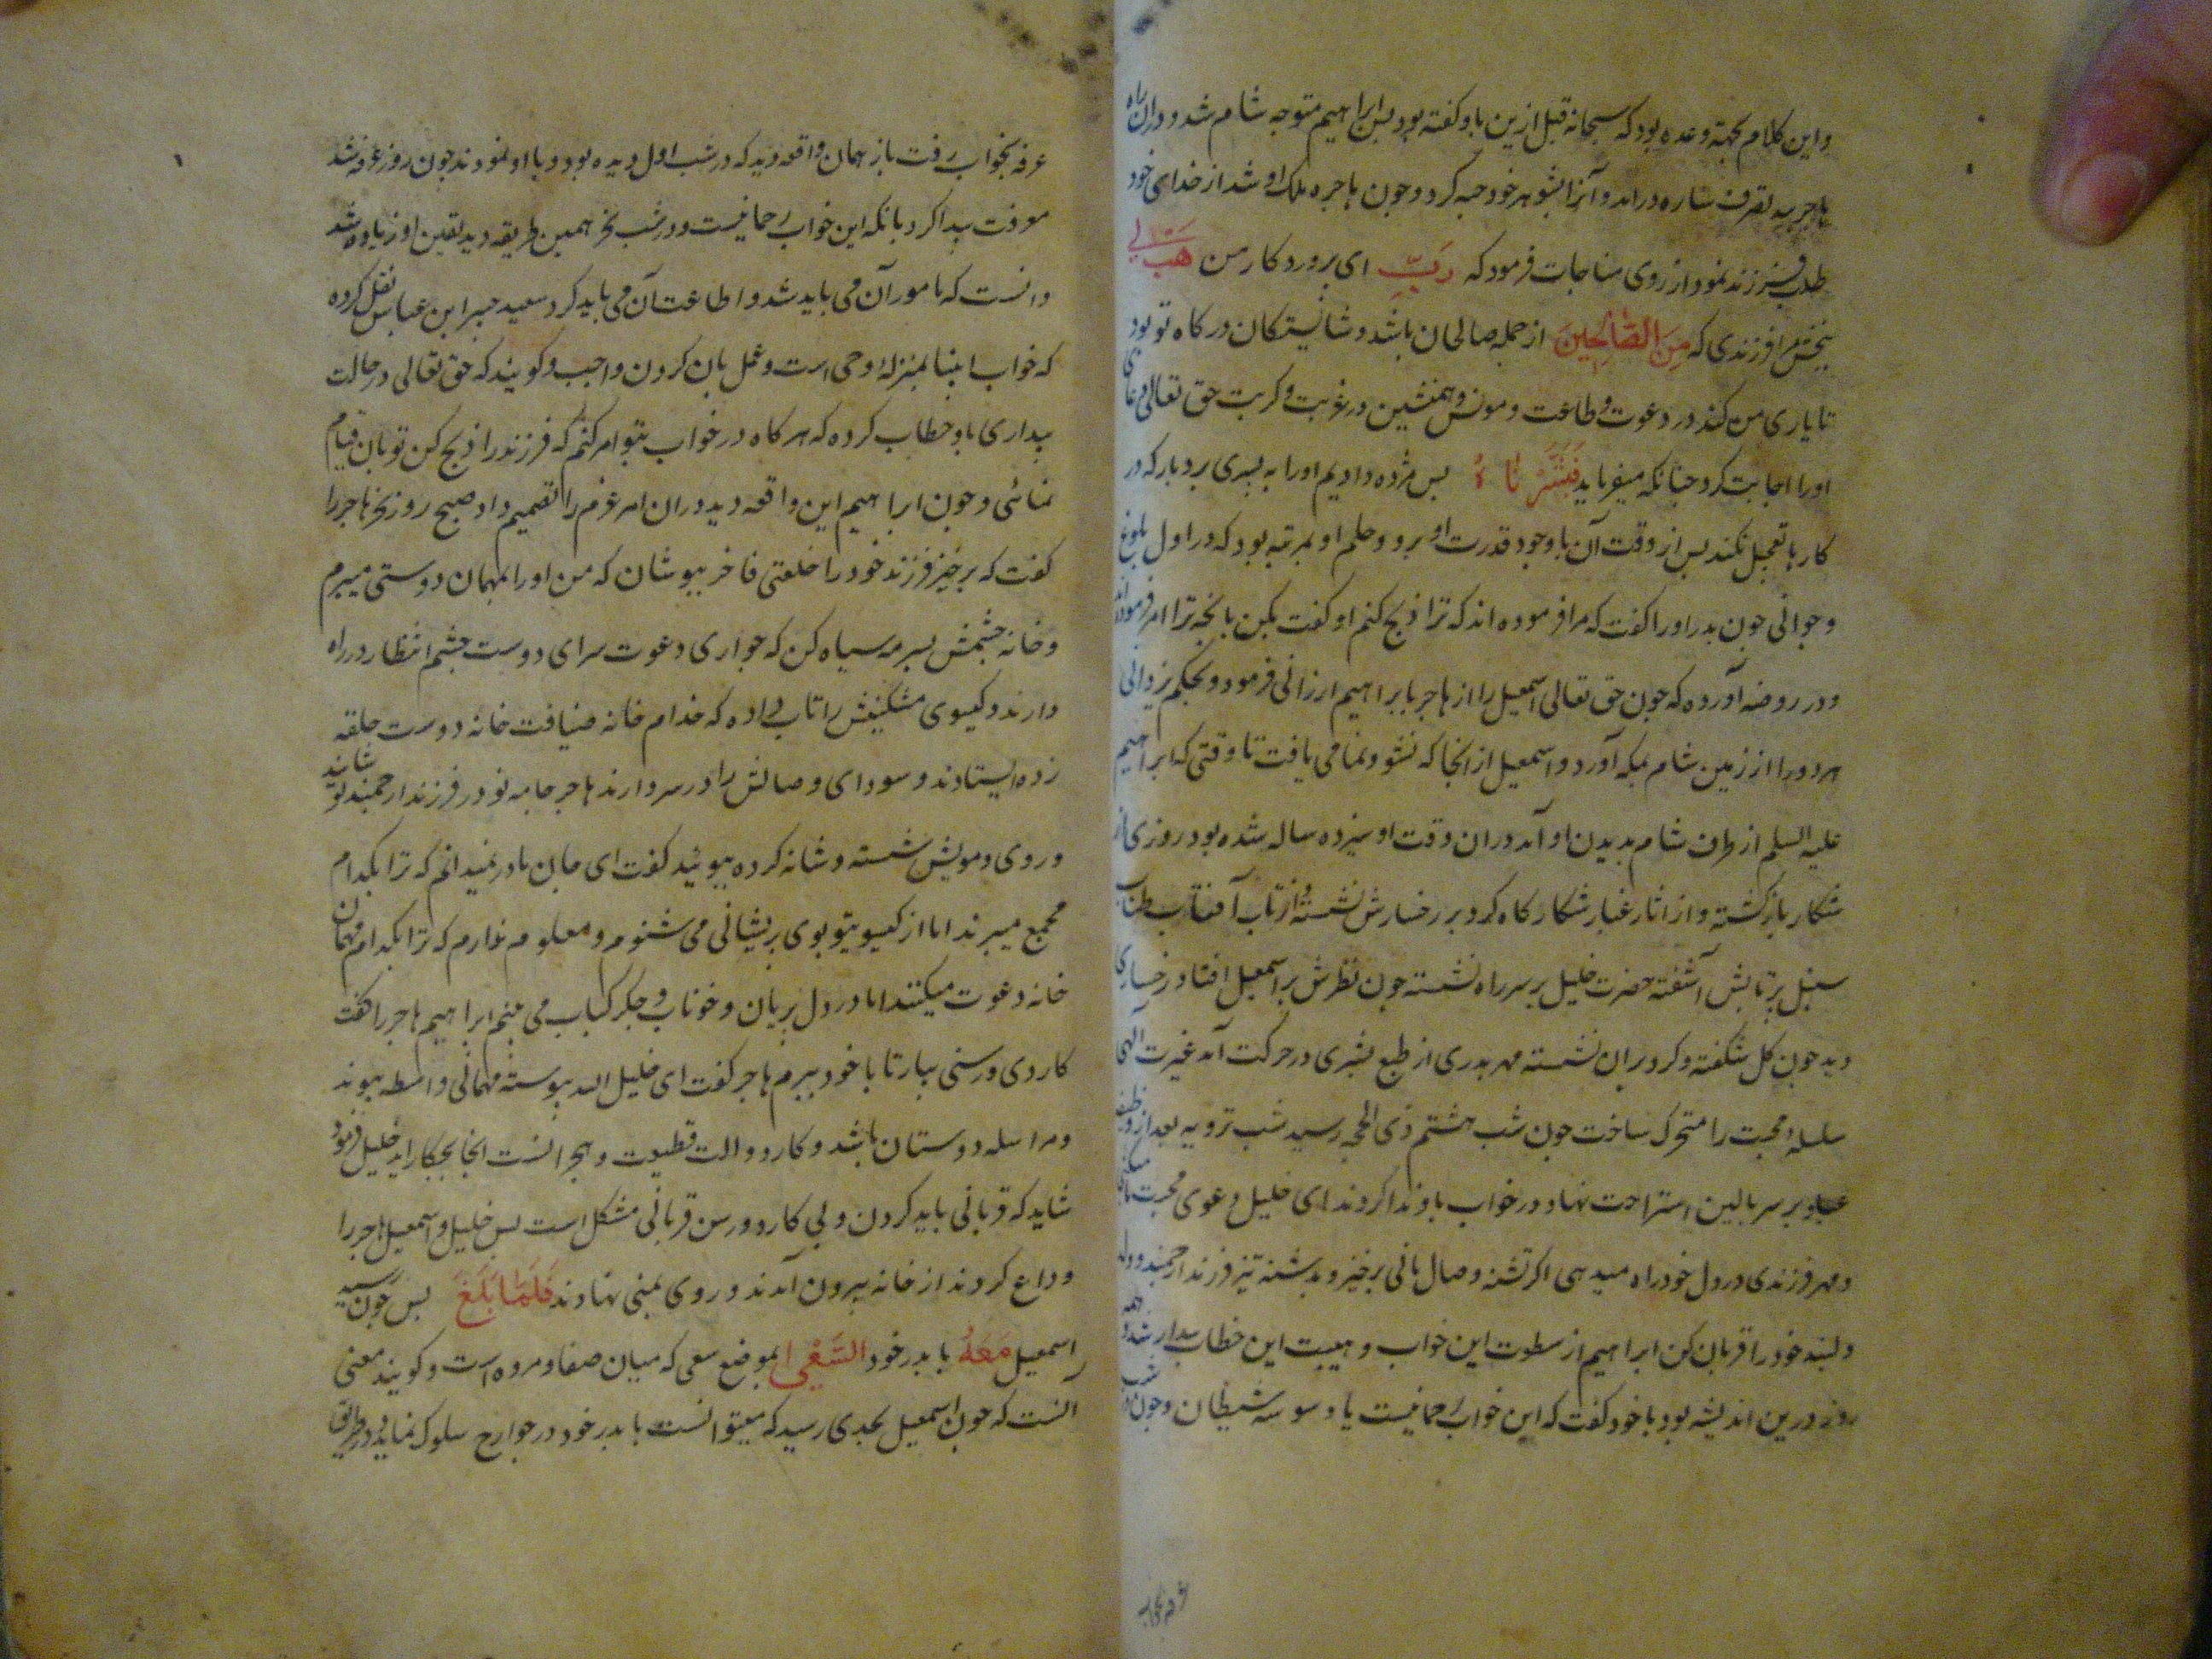 واین کلام بجهة وعده بود که سبحانه قبل ازین باو کفته بود پس ابراهیم متوجه شام شد ودران راه
هاجر به تصرف ساره درامد وآنرا بشوهر خود هبه کرد وجون هاجره ملک او شد از خدای خود
طلب فرزند نمود از روی مناجات فرمود که رَبِّ ای پروردکار من هَبْ لِي
ببخش مرا فرزندی که مِنَ الصَّالِحِينَ از جمله صالحان باشد وشایستکان درکاه تو بود
تا یاری من کند در دعوت وطاعت ومونس وهمنشین در غربت وکربت حق تعالی دعای
اورا اجابت کرد جنانکه میفرماید فَبَشَّرْنَاهُ بس مژده دادیم اورا به پسری بردبار که در
کارها تعجیل نکند پس از وقت آن با وجود قدرت او برو وحلم او بمرتبه بود که در اول بلوغ
وجوانی جون بدر اورا کفت که مرا فرموده اند که ترا ذبح کنم او کفت بکن بانجه ترا امر فرموده اند
ودر روضه آورده که جون حق تعالی اسمعیل را از هاجر بابراهیم ارزانی فرمود وبحکم یزدانی
هردو را از زمین شام بمکه آورد واسمعیل از انجا که نشو ونما می یافت تا وقتی که ابراهیم
علیه السلم از طرف شام بدیدن او آمد دران وقت او سیزده ساله شده بود روزی از
شکار بازکشته واز اثار غبار شکارکاه کرد بر رخسارش نشسته واز تاب آفتاب طناب
سنبل پرتابش آشفته حضرت خلیل بر سر راه نشسته جون نظرش بر اسمعیل افتاد رخساری
دید جون کل شکفته وکرد بران نشسته مهر بدری از طبع بشری در حرکت آمد غیرت الهی
سلسلهٔ محبت را متحرک ساخت جون شب هشتم ذی الحجه رسید شب ترویه بعد از وظیفه
عبادت بر سر بالین استراحت نهاد در خواب باو ندا کردند ای خلیل دعوی محبت ما میکنی
ومهر فرزندی در دل خود راه میدهی اکر تشنه وصال مائی برخیز وبدشنه تیز فرزند ارجمند
دلبند خود را قربان کن ابراهیم از سطوت این خواب وهیبت این خطاب بیدار شد وهمه
روز درین اندیشه بود با خود کفت که این خواب رحمانیست یا وسوسه شیطان وجون شب
عرفه بخواب
عرفه بخواب رفت باز همان واقعه دید که در شب اول دیده بود وبا او نمودند جون روز عرفه شد
معرفت پیدا کرد بانکه این خواب رحمانیست ودر شب نحر همین طریقه دید یقین او زیاده شد
دانست که مامور آن می باید شد واطاعت آن می باید کرد سعید جبیر ابن عباس نقل کرده
که خواب انبیا بمنزلهٔ وحی است وعمل بان کردن واجب وکویند که حق تعالی در حالت
بیداری باو خطاب کرده که هرکاه در خواب بتو امر کنم که فرزند را ذبح کن تو بان قیام
نمائی وجون ابراهیم این واقعه دید دران امر عزم را تصمیم داد صبح روز نحر هاجر را
کفت که برخیز فرزند خود را خلعتی فاخر بپوشان که من اورا بمهمان دوستی میبرم
وخانه جشمش بسرمه سیاه کن که جواری دعوت سرای دوست جشم انتظار در راه
دارند وکیسوی مشکینش را تاب ده که خدام خانه ضیافت خانه دوست حلقه
زده ایستادند وسودای وصالش را در سر دارند هاجر جامه نو در فرزند ارجمند پوشانید
وروی ومویش شسته وشانه کرده ببوئید کفت ای جان مادر نمیدانم که ترا بکدام
مجمع میبرند اما از کیسوی تو بوی پریشانی می شنوم ومعلوم ندارم که ترا بکدام مهمان
خانه دعوت میکنند اما در دل بریان وخوناب وجکر کباب می بینم ابراهیم هاجر را کفت
کاردی ورسنی بیار تا با خود ببرم هاجر کفت ای خلیل الله پیوسته مهمانی واسطه پیوند
ومراسله دوستان باشد وکارد والت قطیعت وهجرانست انجا بجکار اید خلیل فرمود
شاید که قربانی باید کردن وبی کارد ورسن قربانی مشکل است پس خلیل واسمعیل هاجر را
وداع کردند از خانه بیرون آمدند وروی بمنی نهادند فَلَمَّا بَلَغَ پس جون رسید
اسمعیل مَعَهُ با بدر خود السَّعْيَ بموضع سعی که میان صفا ومروه است وکویند معنی
آنست که جون اسمعیل بحدی رسید که میتوانست با بدر خود در جوارح سلوک نماید ودر طریق